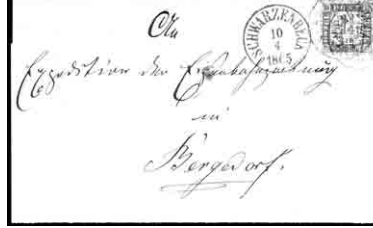 An
SCHWARZENBEK
10
4
1865
Expedition der Eisenbahnzeitung
in
Bergedorf.